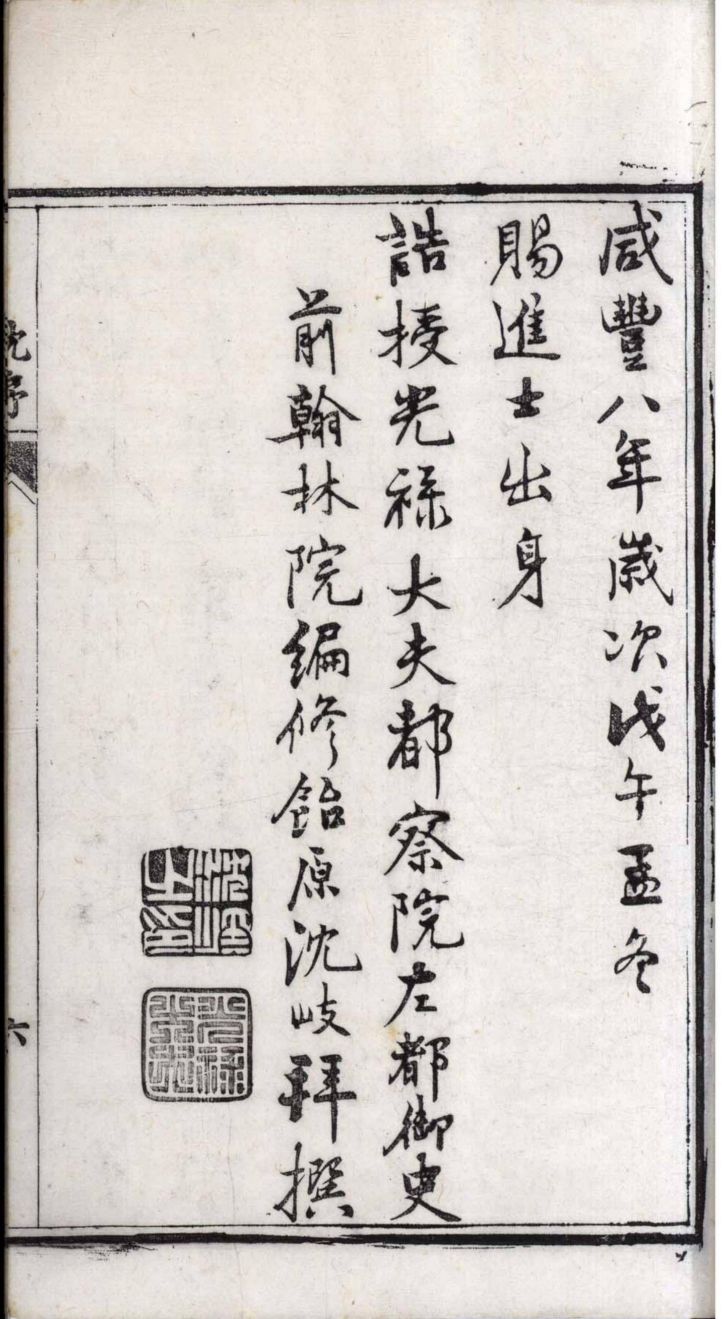 咸豐八年歲次戊午孟冬
賜進士出身
誥授光祿大夫都察院左都御史
前翰林院編修飴原沈岐拜撰
沈岐之印
沈序
六